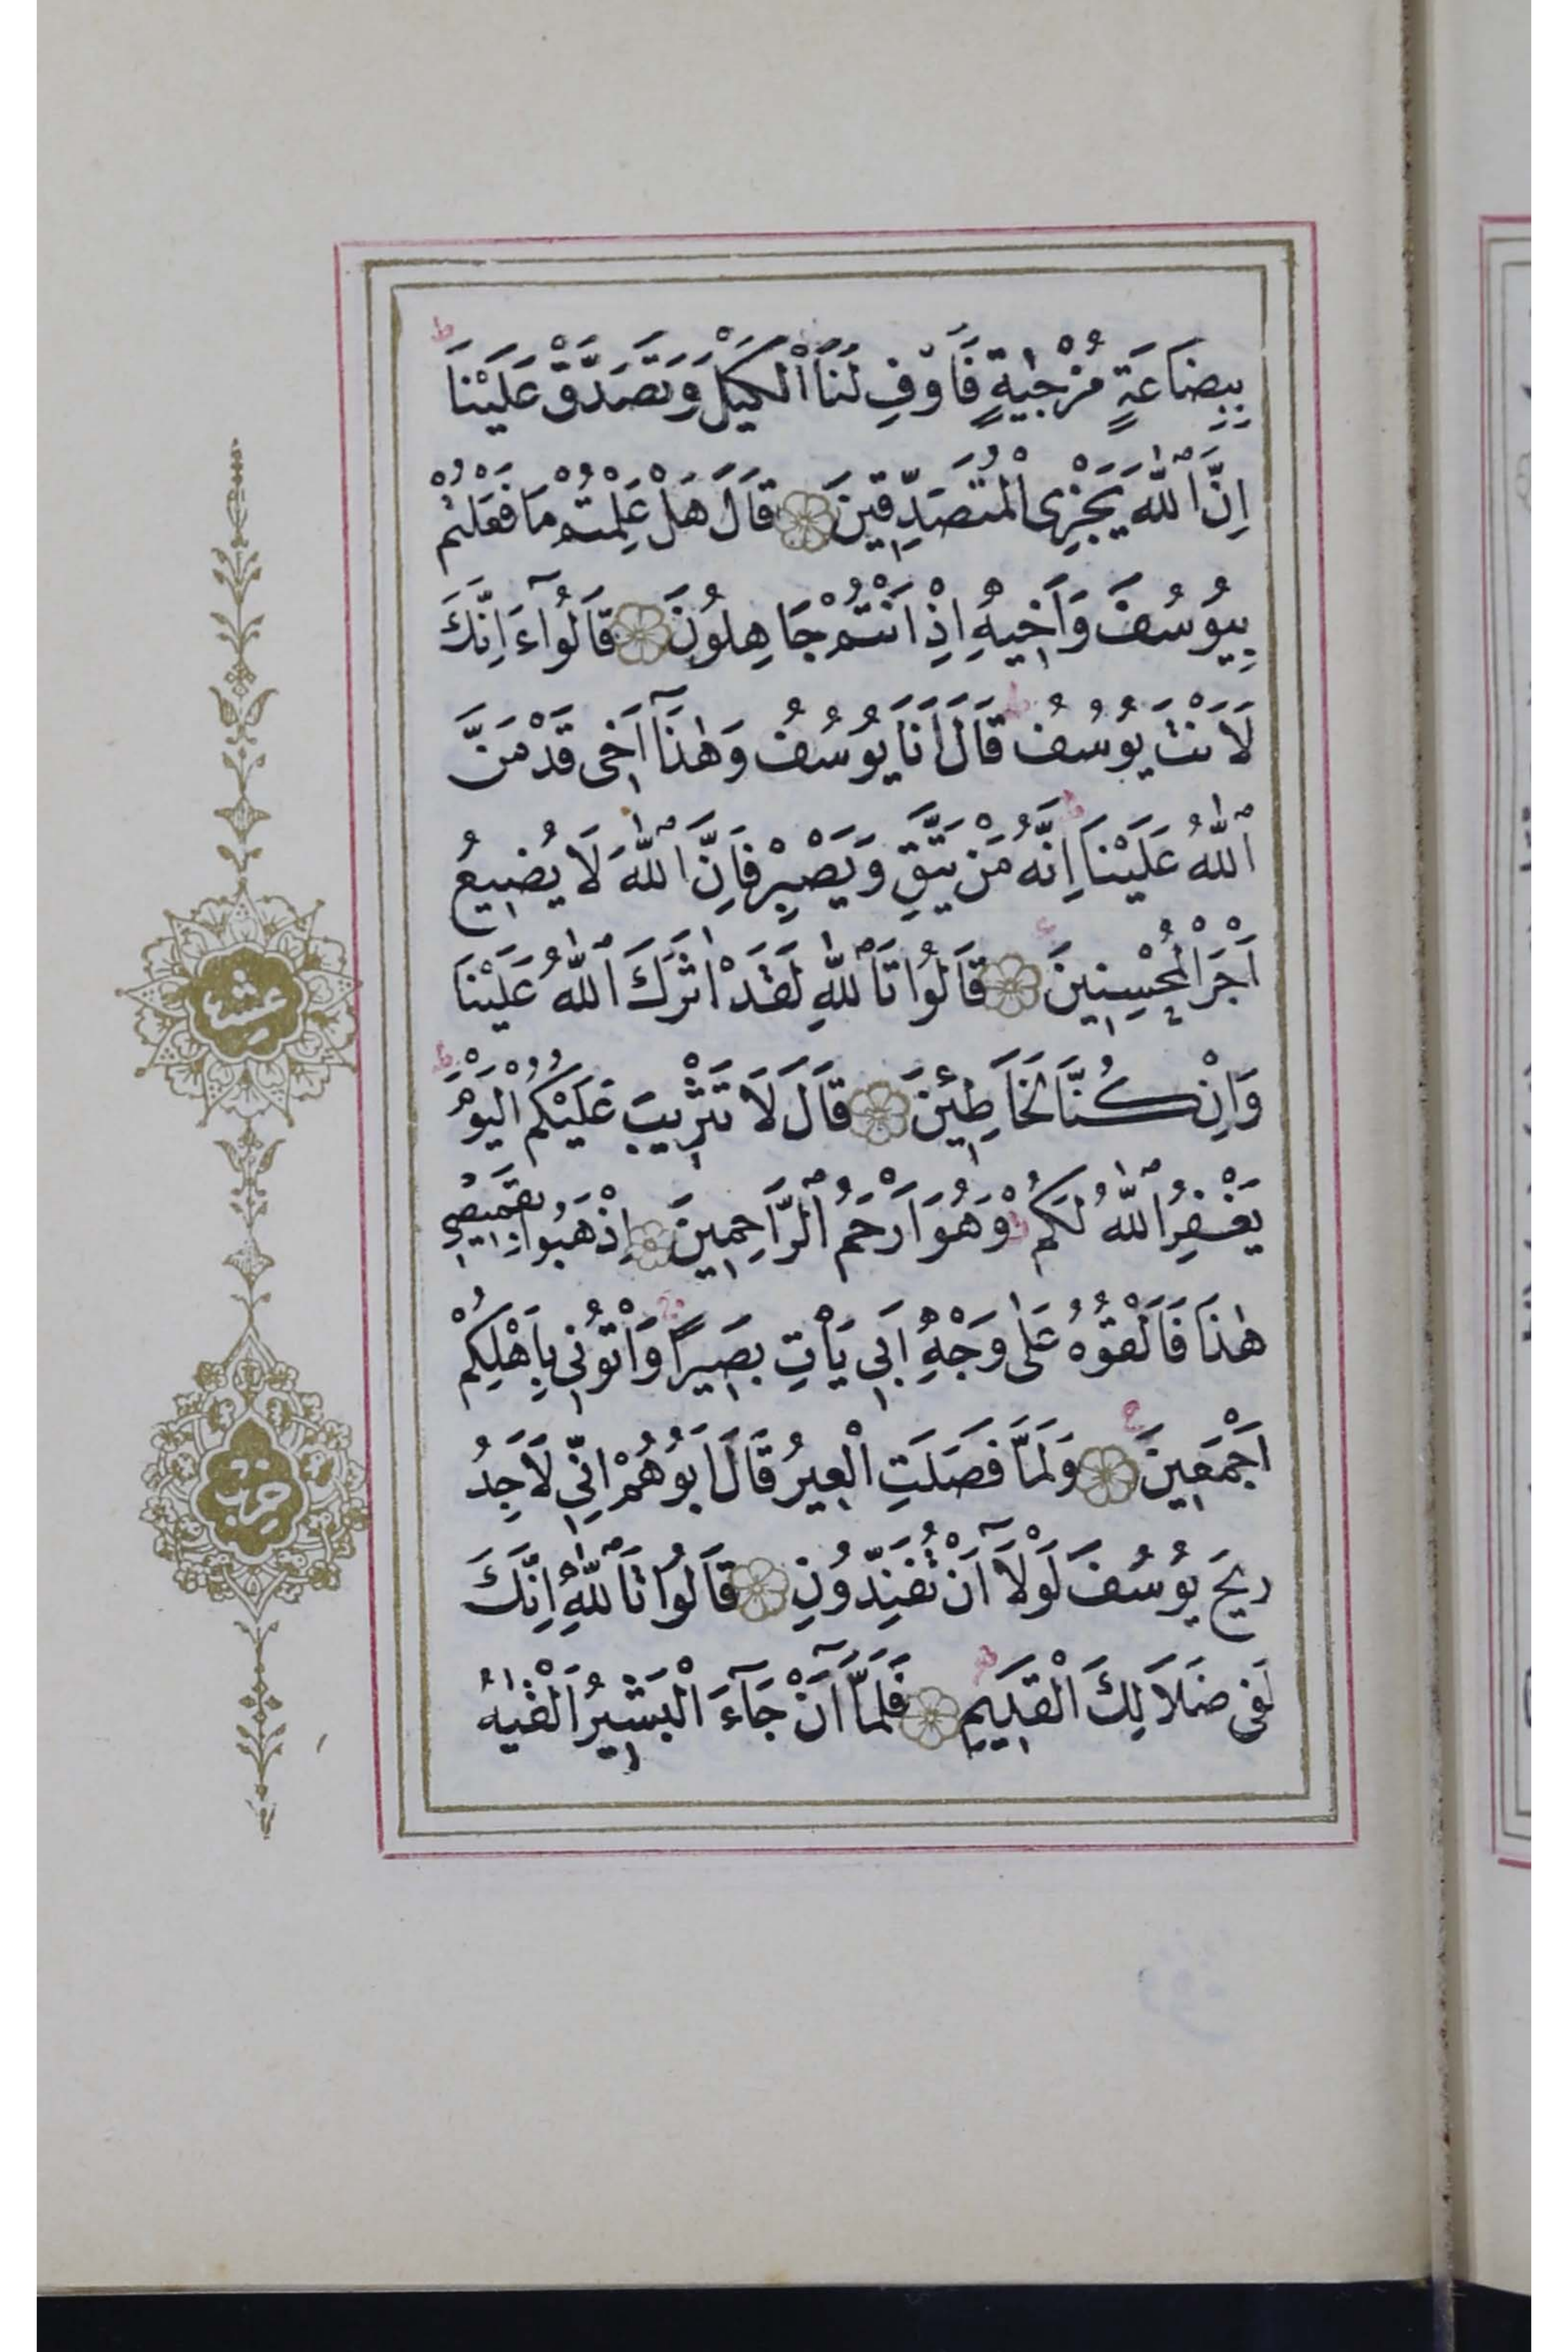 بِبِضَاعَةٍ مُزْجٰيةٍ فَاَوْفِ لَنَا الْكَيْلَ وَتَصَدَّقْ عَلَيْنَا ط
اِنَّ اللّٰهَ يَجْزِى الْمُتَصَدِّقِينَ قَالَ هَلْ عَلِمْتُمْ مَا فَعَلْتُمْ
بِيُوسُفَ وَاَخِيهِ اِذْ اَنْتُمْ جَاهِلُونَ قَالُوٓا ءَاِنَّكَ
لَاَنْتَ يُوسُفُ ط قَالَ اَنَا يُوسُفُ وَهٰذَٓا اَخٖى قَدْ مَنَّ
اللّٰهُ عَلَيْنَا ط اِنَّهُ مَنْ يَتَّقِ وَيَصْبِرْ فَاِنَّ اللّٰهَ لَا يُضٖيعُ
اَجْرَ الْمُحْسِنٖينَ قَالُوا تَاللّٰهِ لَقَدْ اٰثَرَكَ اللّٰهُ عَلَيْنَا
وَاِنْ كُنَّا لَخَاطِئٖينَ قَالَ لَا تَثْرٖيبَ عَلَيْكُمُ الْيَوْمَ ط
يَغْفِرُ اللّٰهُ لَكُمْ وَهُوَ اَرْحَمُ الرَّاحِمٖينَ اِذْهَبُوا بِقَمٖيصٖى
هٰذَا فَاَلْقُوهُ عَلٰى وَجْهِ اَبٖى يَاْتِ بَصٖيرًا وَاْتُونٖى بِاَهْلِكُمْ
اَجْمَعٖينَ ع وَلَمَّا فَصَلَتِ الْعٖيرُ قَالَ اَبُوهُمْ اِنّٖى لَاَجِدُ
رٖيحَ يُوسُفَ لَوْلَٓا اَنْ تُفَنِّدُونِ قَالُوا تَاللّٰهِ اِنَّكَ
لَفٖى ضَلَالِكَ الْقَدٖيمِ ط فَلَمَّٓا اَنْ جَٓاءَ الْبَشٖيرُ اَلْقٰيهُ
عشر
حزب